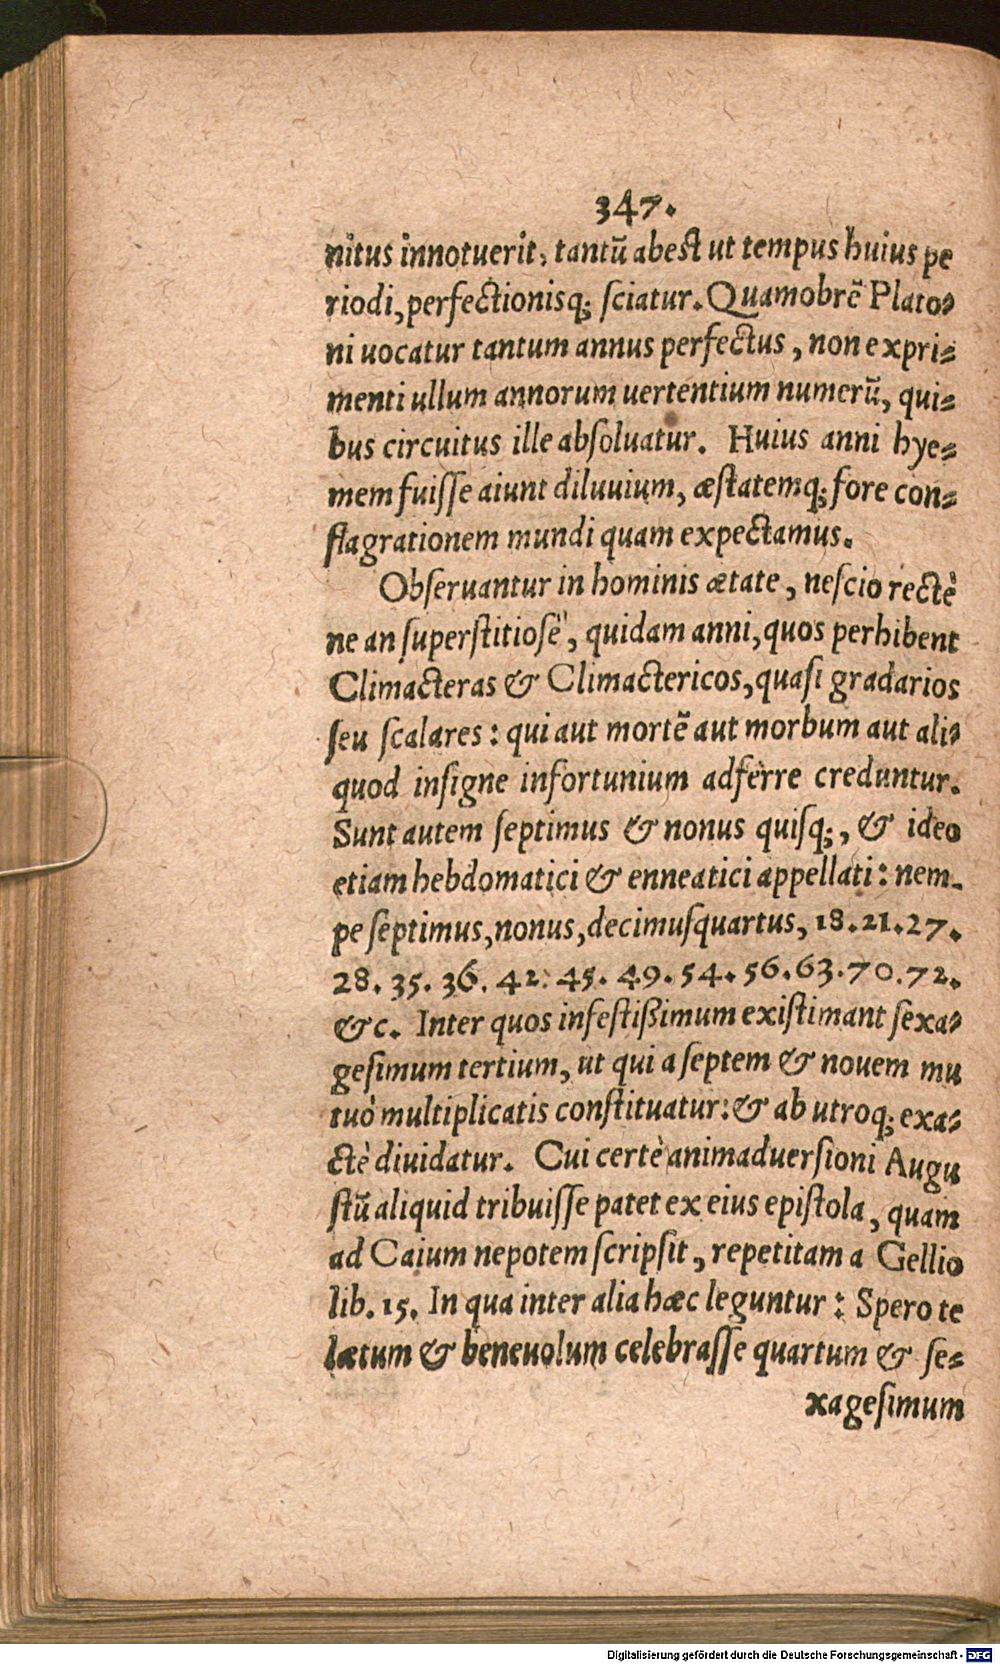 347.
nitus innotuerit, tantũ abest ut tempus huius pe
riodi, perfectionisq; sciatur. Quamobrẽ Plato-
ni uocatur tantum annus perfectus, non expri-
menti ullum annorum uertentium numerũ, qui-
bus circuitus ille absoluatur. Huius anni hye-
mem fuisse aiunt diluuium, æstatemq; fore con-
flagrationem mundi quam expectamus.
Obseruantur in hominis ætate, nescio rectè
ne an superstitiosè, quidam anni, quos perhibent
Climacteras & Climactericos, quasi gradarios
seu scalares: qui aut mortẽ aut morbum aut ali-
quod insigne infortunium adferre creduntur.
Sunt autem septimus & nonus quisq;, & ideo
etiam hebdomatici & enneatici appellati: nem-
pe septimus, nonus, decimusquartus, 18. 21. 27.
28. 35. 36. 42. 45. 49. 54. 56. 63. 70. 72.
&c. Inter quos infestißimum existimant sexa-
gesimum tertium, ut qui a septem & nouem mu
tuò multiplicatis constituatur: & ab utroq; exa-
ctè diuidatur. Cui certè animaduersioni Augu
stũ aliquid tribuisse patet ex eius epistola, quam
ad Caium nepotem scripsit, repetitam a Gellio
lib. 15. In qua inter alia hæc leguntur: Spero te
lætum & beneuolum celebrasse quartum & se-
xagesimum
Digitalisierung gefördert durch die Deutsche Forschungsgemeinschaft - DFG